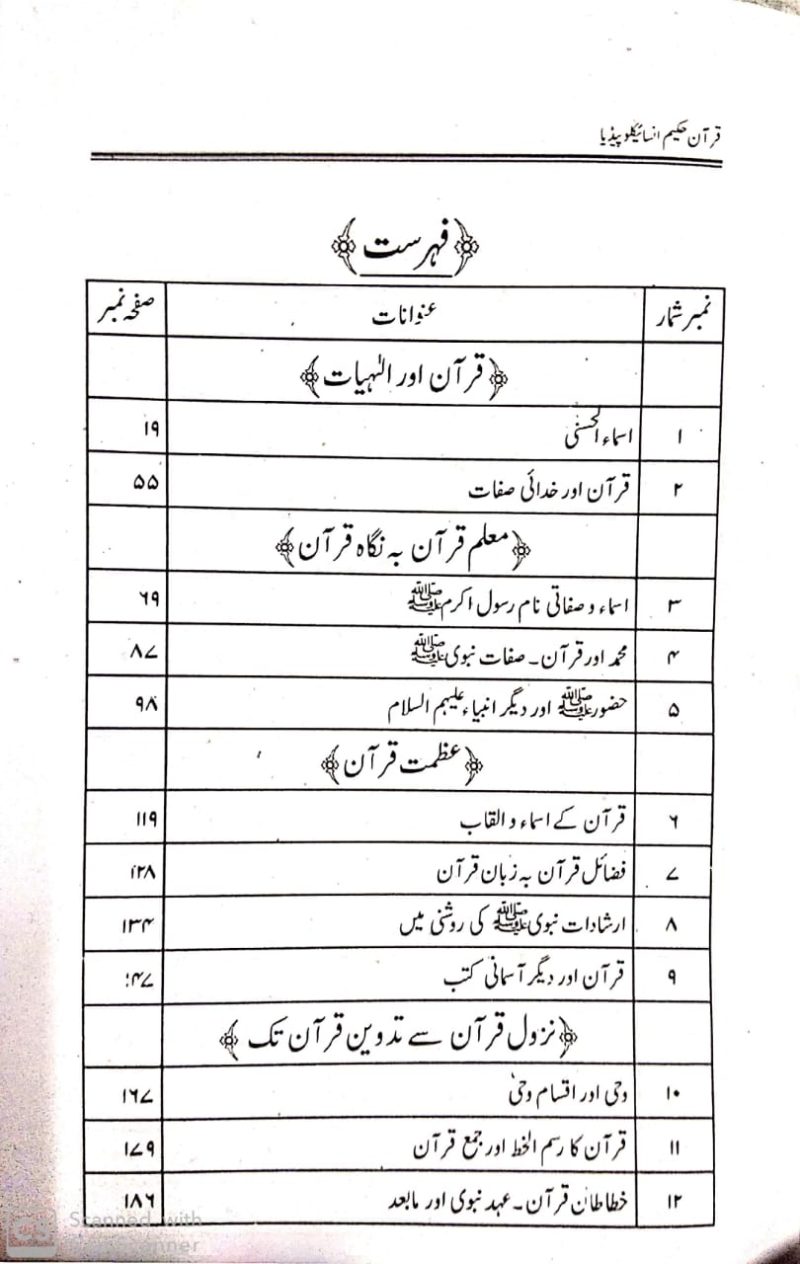 قرآن حکیم انسائیکلوپیڈیا
﴿فہرست﴾
نمبر شمار عنوانات صفحہ نمبر
﴿قرآن اور الٰہیات﴾
۱ اسماء الحسنٰی ۱۹
۲ قرآن اور خدائی صفات ۵۵
﴿معلم قرآن بہ نگاہ قرآن﴾
۳ اسماء و صفاتی نام رسول اکرم ﷺ ۶۹
۴ محمد اور قرآن۔ صفات نبوی ﷺ ۸۷
۵ حضور ﷺ اور دیگر انبیاء علیہم السلام ۹۸
﴿عظمت قرآن﴾
۶ قرآن کے اسماء و القاب ۱۱۹
۷ فضائل قرآن بہ زبان قرآن ۱۲۸
۸ ارشادات نبوی ﷺ کی روشنی میں ۱۳۴
۹ قرآن اور دیگر آسمانی کتب ۱۴۷
﴿نزول قرآن سے تدوین قرآن تک﴾
۱۰ وحی اور اقسام وحی ۱۶۷
۱۱ قرآن کا رسم الخط اور جمع قرآن ۱۷۹
۱۲ خطاطان قرآن۔ عہد نبوی اور مابعد ۱۸۶
CS Scanned with
CamScanner